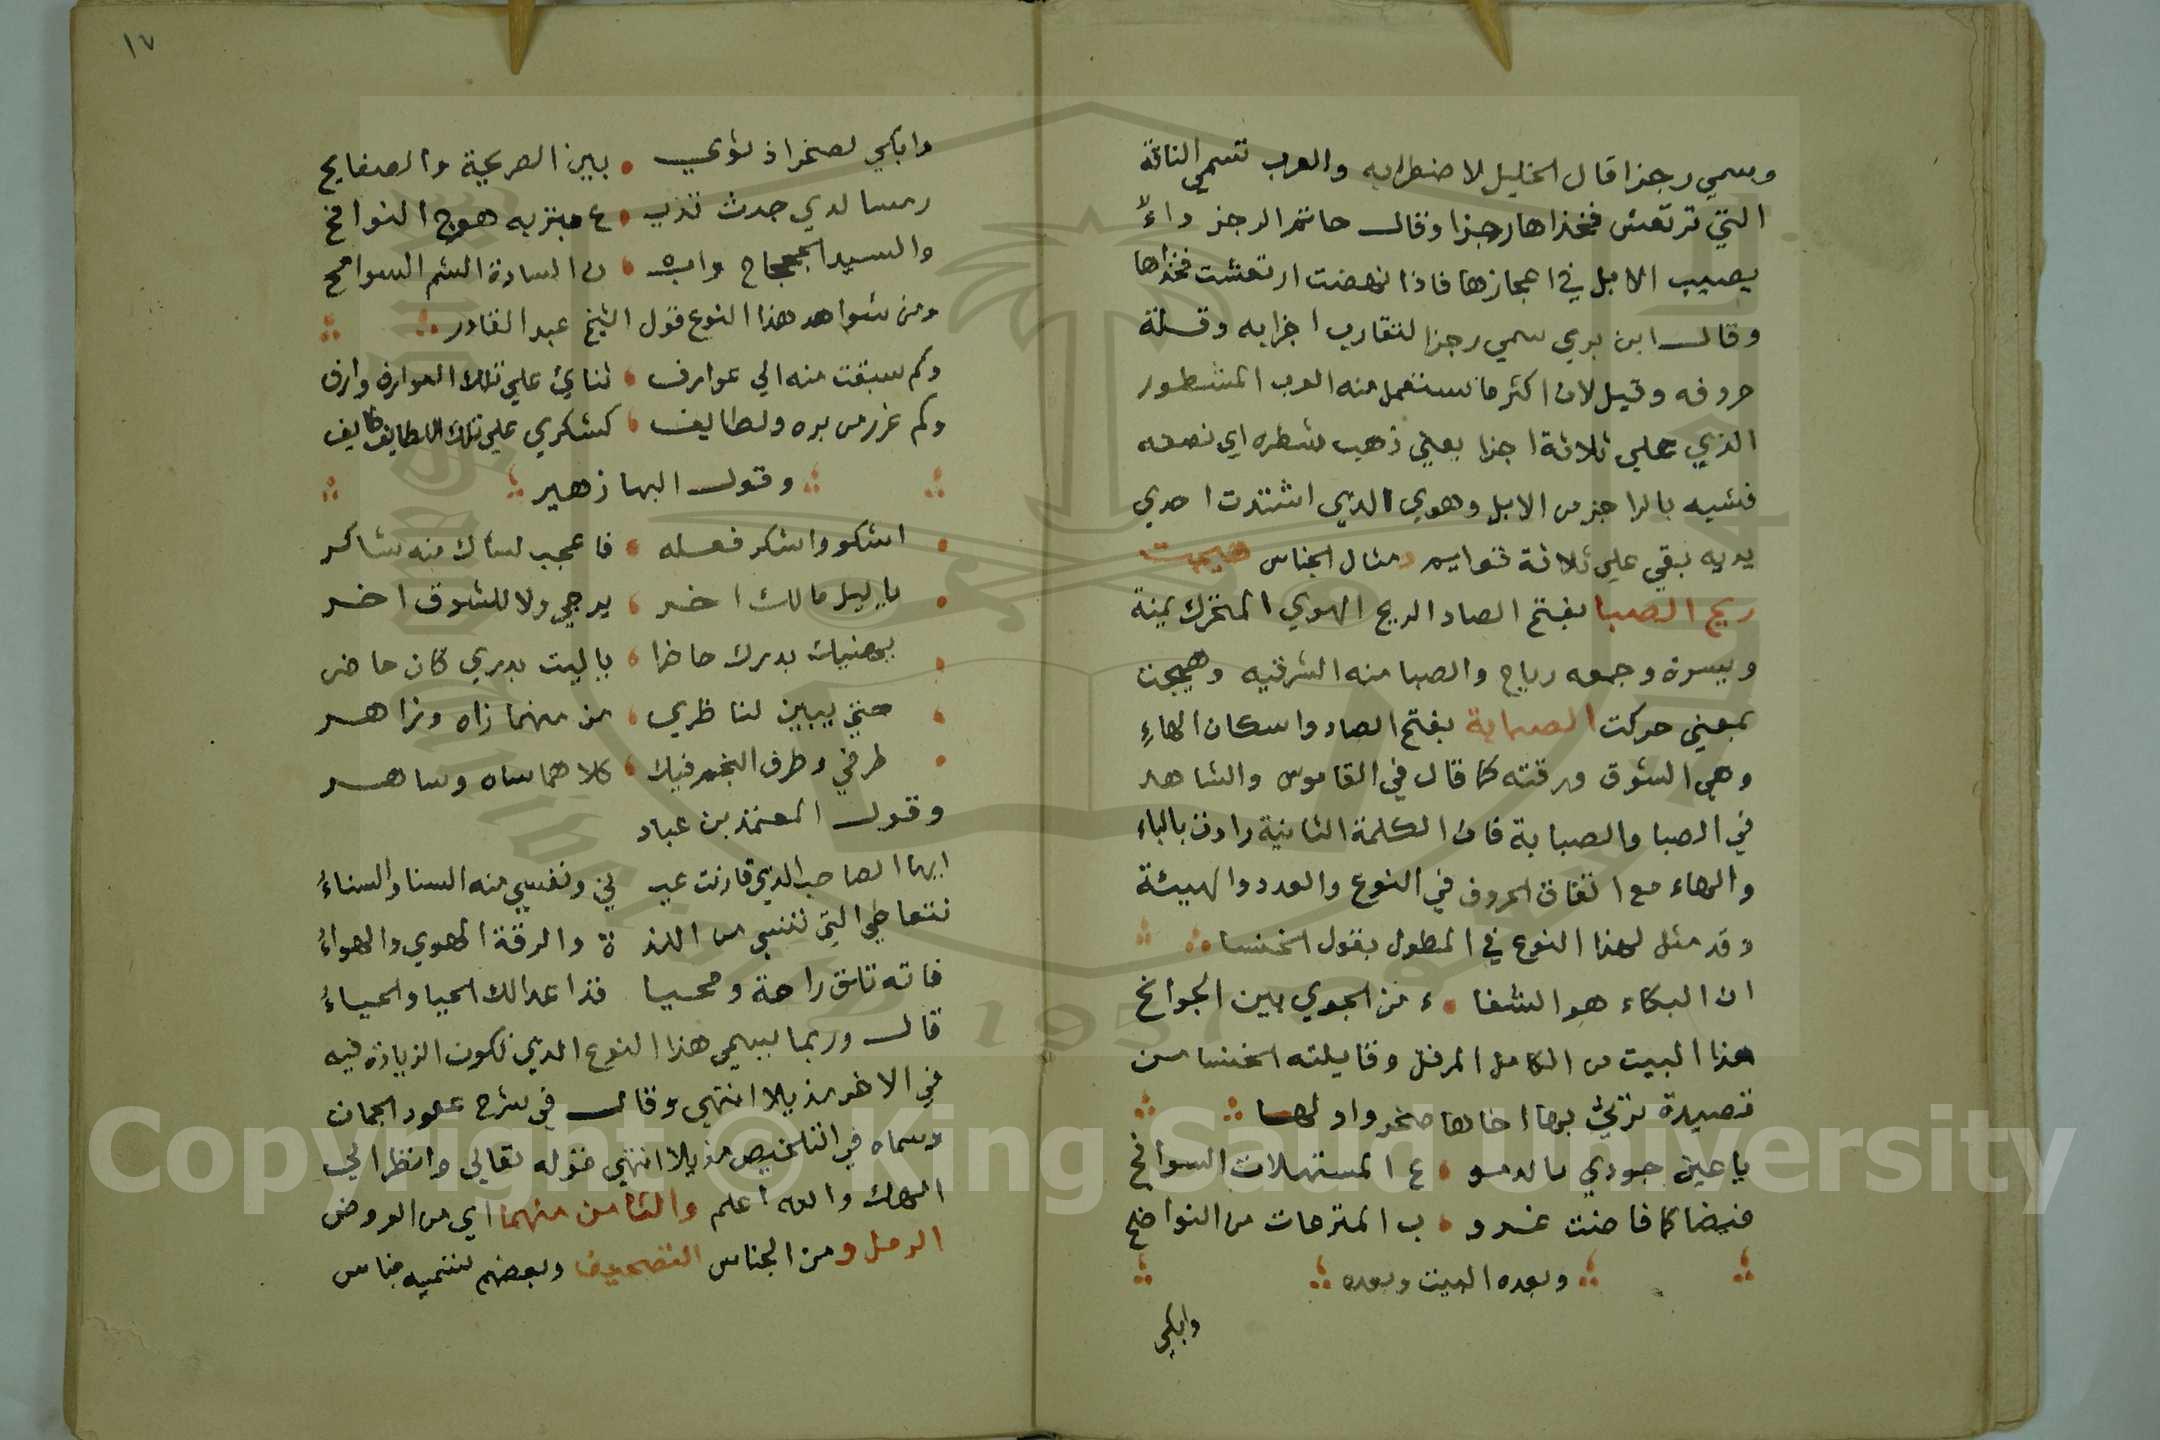 وسمي رجزا قال الخليل لاضطرابه والعرب تسمي الناقة
التي ترتعش فخذاها رجزا وقال حاتم الرجز داءً
يصيب الابل في اعجازها فاذا نهضت ارتعشت فخذاها
وقال ابن بري سمي رجزا لتقارب اجزايه وقلة
حروفه وقيل لان اكثر ما تستعمل منه العرب المشطور
الذي علي ثلاثة اجزا يعني ذهب شطره اي نصفه
فشبه بالراجز من الابل وهوي الذي اشتدت احدي
يديه بقي علي ثلاثة قوايم ومثال الجناس هيجت
ريح الصبا بفتح الصاد الريح الهوي المتحرك يمنة
ويسرة وجمعه رياح والصبا منه الشرقيه وهيجت
بمعني حركت الصبابة بفتح الصاد واسكان الهاءِ
وهي الشوق ورقته كما قال في القاموس والشاهد
في الصبا والصبابة فان الكلمة الثانية زادت بالباء
والهاء مع اتفاق الحروف في النوع والعدد والهيئة
وقد مثل لهذا النوع في المطول بقول الخنسا
ان البكاء هو الشفا ء من الجوي بين الجوانح
هذا البيت من الكامل المرفل وقايلته الخنسا من
قصيدة ترثي بها اخاها صخر واولها
يا عين جودي بالدمو ع المستهلات السوافح
فيضا كما فاضت غرو ب المترعات من النواضح
وبعده البيت وبعده
وابكي
١٧
وابكي لصخر اذ ثوي بين الصريحة والصفايح
رمسا لدي جدث تذيـ ع بتربه هوج النوافح
والسيد الجحجاح وابـ ن السادة الشم السوامح
ومن شواهد هذا النوع قول الشيخ عبد القادر
وكم سبقت منه الي عوارف ثنايئ علي تلك العوارف وارف
وكم غرر من بره ولطايف كشكري علي تلك اللطايف طايف
وقول البها زهير
اشكو واشكر فعله فاعجب لشاك منه شاكر
يا ليل مالك اخر يرجي ولا للشوق اخر
يهنيك بدرك حاضرا يا ليت بدري كان حاضر
حتي يبين لناظري من منهما زاه وزاهر
طرفي وطرف النجم فيك كلاهما ساه وساهر
وقول المعتمد بن عباد
ايها الصاحب الذي فارنت عيـ ني ونفسي منه السنا والسناءُ
نتعاطي التي تنسي من اللذ ة والرقة الهوي والهواءُ
فاته تلق راحة ومحيا قد اعدا لك الحيا والحياءُ
قال وربما يسمي هذا النوع الذي تكون الزيادة فيه
في الاخر مذيلا انتهي وقال في شرح عقود الجمان
وسماه في التلخيص مذيلا انتهي قوله تعالي وانظر الي
الهك والله اعلم والثامن منهما اي من العروض
الرمل ومن الجناس التصحيف وبعضهم تسميه جناس